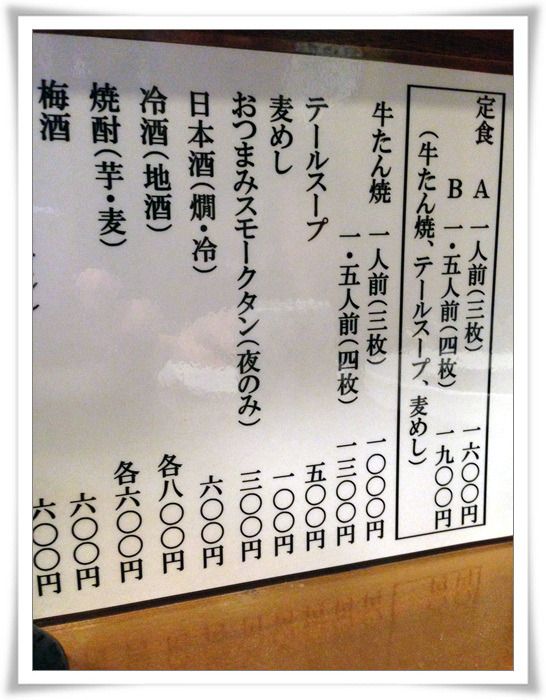 定食 A 一人前(三枚) 一六〇〇円
B 一・五人前(四枚) 一九〇〇円
(牛たん焼、テールスープ、麦めし)
牛たん焼 一人前(三枚) 一〇〇〇円
一・五人前(四枚) 一三〇〇円
テールスープ 五〇〇円
麦めし 一〇〇円
おつまみスモークタン(夜のみ) 三〇〇円
日本酒(燗・冷) 六〇〇円
冷酒(地酒) 各八〇〇円
焼酎(芋・麦) 各六〇〇円
梅酒 六〇〇円
六〇〇円